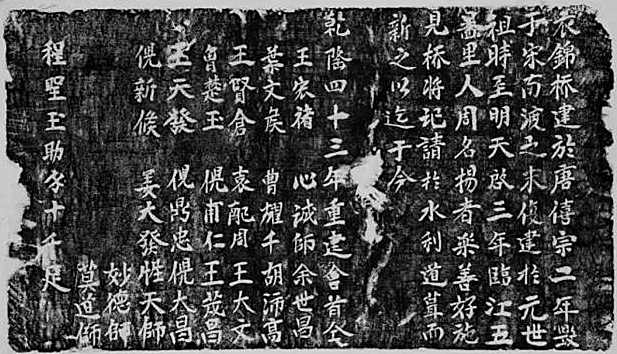 衣錦桥建於唐僖宗二年毀
于宋南渡之末復建於元世
祖時至明天啟三年臨江五
啚里人周名揚者樂善好施
見桥将圮請於水利道葺而
新之以迄于今
乾隆四十三年重建會首仝
王宏禇 心誠師余世昌
葉文矦 曹耀千胡沛髙
王賢倉 袁配周王大文
魯楚玉 倪甫仁王茂昌
王天發 倪鼎忠倪大昌
倪新候 姜大發性天師
妙德師
萱道師
程聖玉助錢十千足